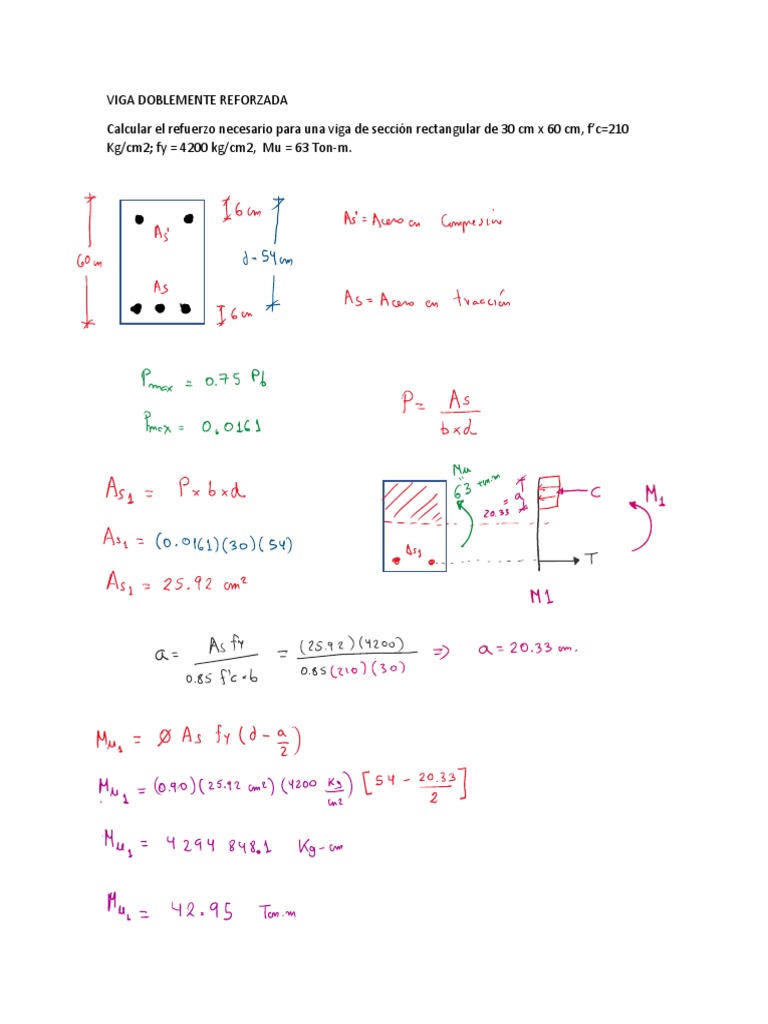 VIGA DOBLEMENTE REFORZADA
Calcular el refuerzo necesario para una viga de sección rectangular de 30 cm x 60 cm, f'c=210
Kg/cm2; fy = 4200 kg/cm2, Mu = 63 Ton-m.
60 cm
As'
As
6 cm
d = 54 cm
6 cm
As' = Acero en Compresión
As = Acero en tracción
Pmax = 0.75 Pb
Pmax = 0.0161
P = As / b×d
As1 = P × b × d
As1 = (0.0161)(30)(54)
As1 = 25.92 cm²
Mu
"
63 ton.m
As1
a
=
20.33
C
T
M1
M1
a = As fy / 0.85 f'c × b = (25.92)(4200) / 0.85 (210)(30) => a = 20.33 cm.
Mu1 = Ø As fy (d - a/2)
Mu1 = (0.90)(25.92 cm²)(4200 Kg/cm2) [54 - 20.33/2]
Mu1 = 4294 848.1 Kg-cm
Mu1 = 42.95 Ton.m